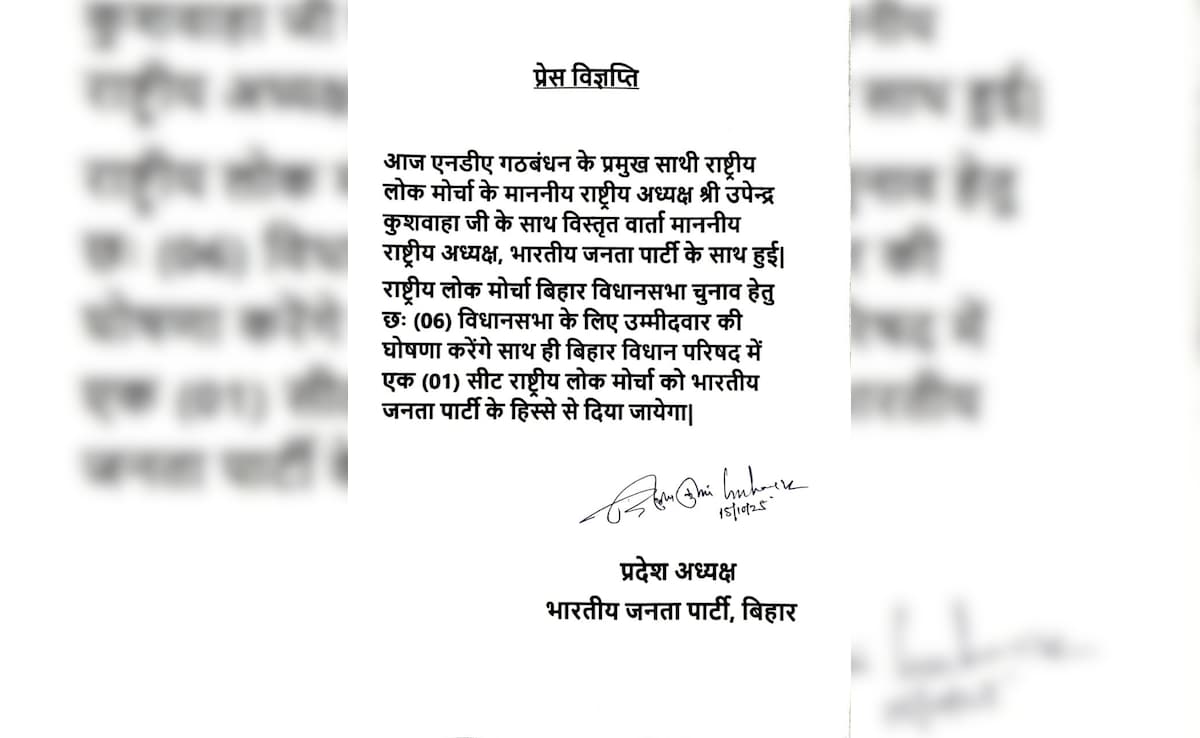 प्रेस विज्ञप्ति
आज एनडीए गठबंधन के प्रमुख साथी राष्ट्रीय
लोक मोर्चा के माननीय राष्ट्रीय अध्यक्ष श्री उपेन्द्र
कुशवाहा जी के साथ विस्तृत वार्ता माननीय
राष्ट्रीय अध्यक्ष, भारतीय जनता पार्टी के साथ हुई|
राष्ट्रीय लोक मोर्चा बिहार विधानसभा चुनाव हेतु
छः (06) विधानसभा के लिए उम्मीदवार की
घोषणा करेंगे साथ ही बिहार विधान परिषद में
एक (01) सीट राष्ट्रीय लोक मोर्चा को भारतीय
जनता पार्टी के हिस्से से दिया जायेगा|
15/10/25
प्रदेश अध्यक्ष
भारतीय जनता पार्टी, बिहार